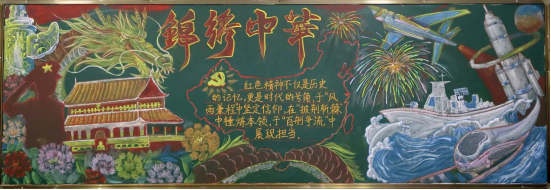 锦绣中华
红色精神不仅是历史
的记忆，更是时代的号角，于“风
雨兼程”中坚定信仰，在“披荆斩棘”
中锤炼本领，于“百舸争流”中
展现担当.